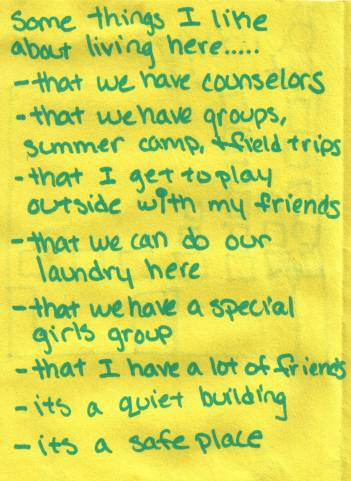 Some things I like
about living here.....
- that we have counselors
- that we have groups,
summer camp, + field trips
- that I get to play
outside with my friends
- that we can do our
laundry here
- that we have a special
girls group
- that I have a lot of friends
- its a quiet building
- its a safe place